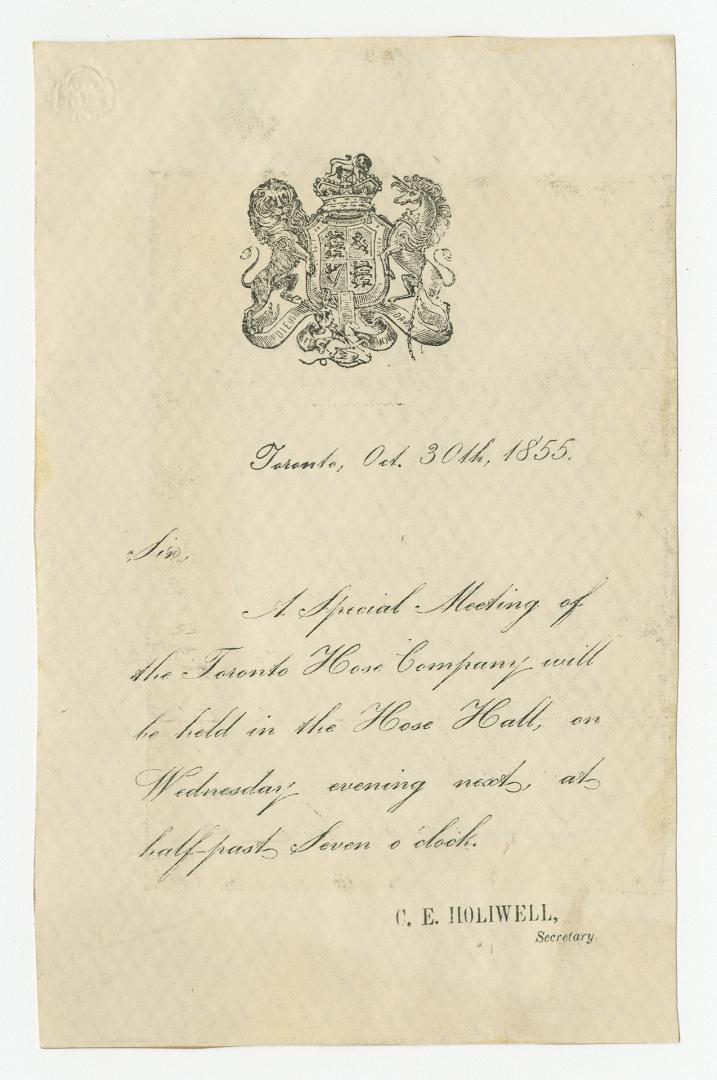 Toronto, Oct. 30th, 1855.
Sir,
A Special Meeting of
the Toronto Hose Company will
be held in the Hose Hall, on
Wednesday evening next, at
half-past Seven o'clock.
C. E. HOLIWELL,
Secretary.